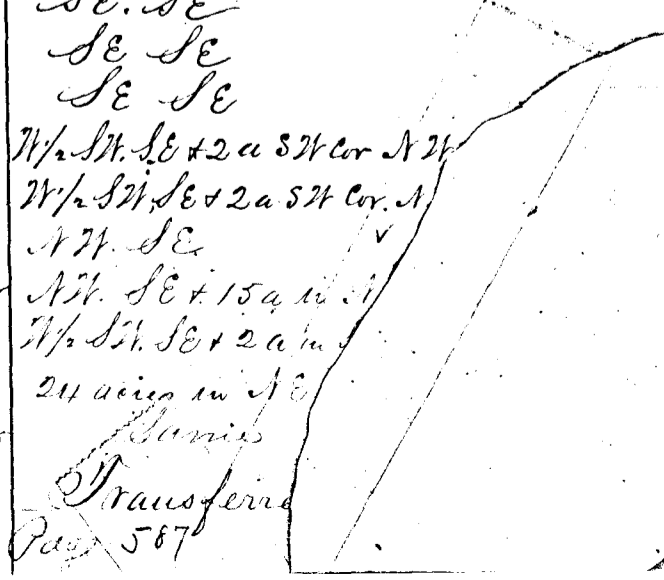 SE. SE
SE SE
SE SE
W/2 SW. SE & 2 a SW Cor N W
W/2 SW. SE & 2 a SW Cor. N
N W. SE
N W. SE & 15 a in N
W/2 SW. SE & 2 a in
24 acres in NE
Same
Transferre
Page 587